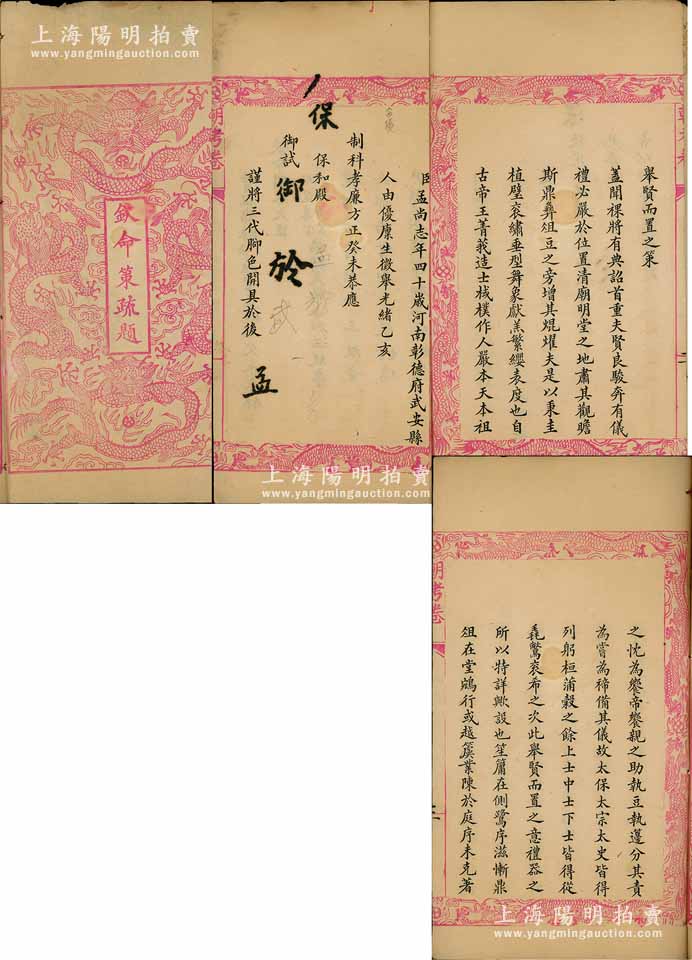 上海陽明拍賣
www.yangmingauction.com
欽命策疏題
朝考卷
臣孟尚志年四十歲河南彰德府武安縣
人由優廩生徵舉光緒乙亥
制科孝廉方正癸未恭應
保和殿
御試
謹將三代腳色開具於後
保
御
於
孟
舉賢而置之策
蓋聞祼將有典詔首重夫賢良駿奔有儀
禮必嚴於位置清廟明堂之地肅其觀瞻
斯鼎彝俎豆之旁增其焜燿夫是以秉圭
植璧袞繡垂型舞象獻羔繁纓表度也自
古帝王菁莪造士棫樸作人嚴本天本祖
上海陽明拍賣
www.yangmingauction.com
朝考卷
之忱為饗帝饗親之助執豆執籩分其責
為嘗為禘備其儀故太保太宗太史皆得
列躬桓蒲穀之餘上士中士下士皆得從
毳驚袞希之次此舉賢而置之意禮器之
所以特詳歟設也笙簫在側鷺序滋慚鼎
俎在堂鵷行或越簴業陳於庭序未克著
上海陽明拍賣
www.yangmingauction.com